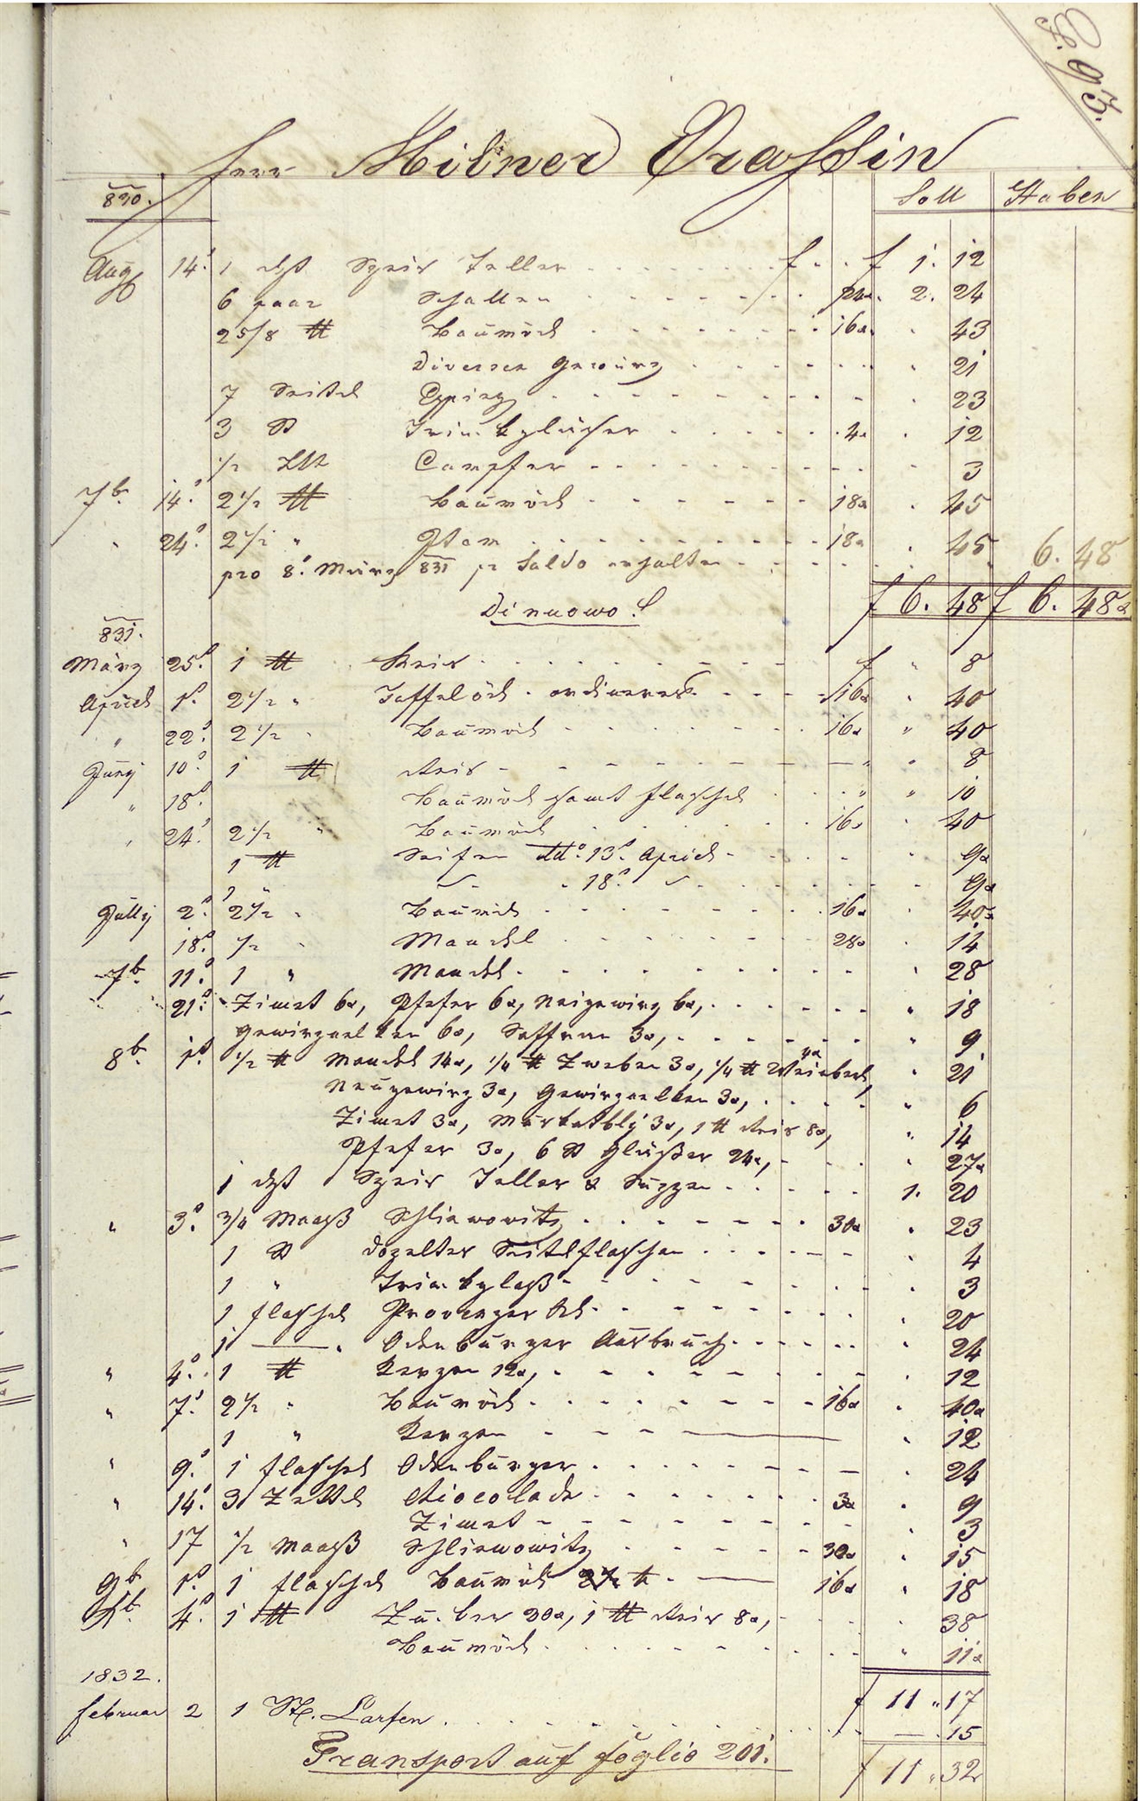 F. 93.
Herr Milner Vrassin
830.
Soll Haben
Aug 14. 1 dzt Speis Teller f f 1. 12
6 paar Schallen 24x 2. 24
2 5/8 ℔ Baumöhl 16x 43
Diverses Gewürz 21
7 Seitel Essig 23
3 St Trinkgläser 4x 12
1/2 Lth Campfer 3
7b 14. 2 1/2 ℔ Baumöhl 18x 45
" 24. 2 1/2 " Itom 18x 45 6. 48
pro 8. März 831 pr Saldo erhalten
f 6. 48 f 6. 48x
Dinuowo
831.
März 25. 1 ℔ Reis f " 8
Aprill 1. 2 1/2 " Taffelöhl ordineres 16x 40
" 22. 2 1/2 " Baumöhl 16x " 40
Juny 10. 1 ℔ Reis " 8
" 18. Baumöhl samt flaschel " 10
" 24. 2 1/2 " Baumöhl 16x 40
1 ℔ Seifen dto. 13. Aprill 9x
1 " 18. 9x
Jully 2. 2 1/2 " Baumöhl 16x 40x
18. 1/2 " Mandel 28x 14
7b. 11. 1 " Mandel 28
21. Zimet 6x, Pfefer 6x, Neigewirz 6x, 18
Gewirznelken 6x, Saffran 3x, 9
8b. 1. 1/2 ℔ Mandel 14x, 1/4 ℔ Zweben 3x, 1/4 ℔ Weinberl 4x, 21
Neugewirz 3x, Gewirznelken 3x, 6
Zimet 3x, Muskatbly 3x, 1 ℔ Reis 8x, 14
Pfefer 3x, 6 St Gläser 24x, 27x
1 dzt Speis Teller & Suppen 1. 20
" 3. 3/4 Maaß Schliwowitz 30x 23
1 St Dopelter Seitelflaschen 4
1 " Trinkglaß 3
1 flaschel Provenzer Öhl 20
1 — Odenburger Ausbruch 24
" 4. 1 ℔ Kerzen 12x, 12
" 7. 2 1/2 " Baumöhl 16x 40x
1 " Kerzen 12
" 9. 1 flaschel Odenburger 24
" 14. 3 Zettel Chiocolade 3x 9
Zimet 3
" 17 1/2 Maaß Schliwowitz 30x 15
9b 1. 1 flaschel Baumöhl 16x 18
4. 1 ℔ Zucker 30x, 1 ℔ Reis 8x, 38
Baumöhl " 11x
1832.
f 11 " 17
Februar 2 1 St. Larfen 15
Transport auf foglio 201.
f 11 " 32x